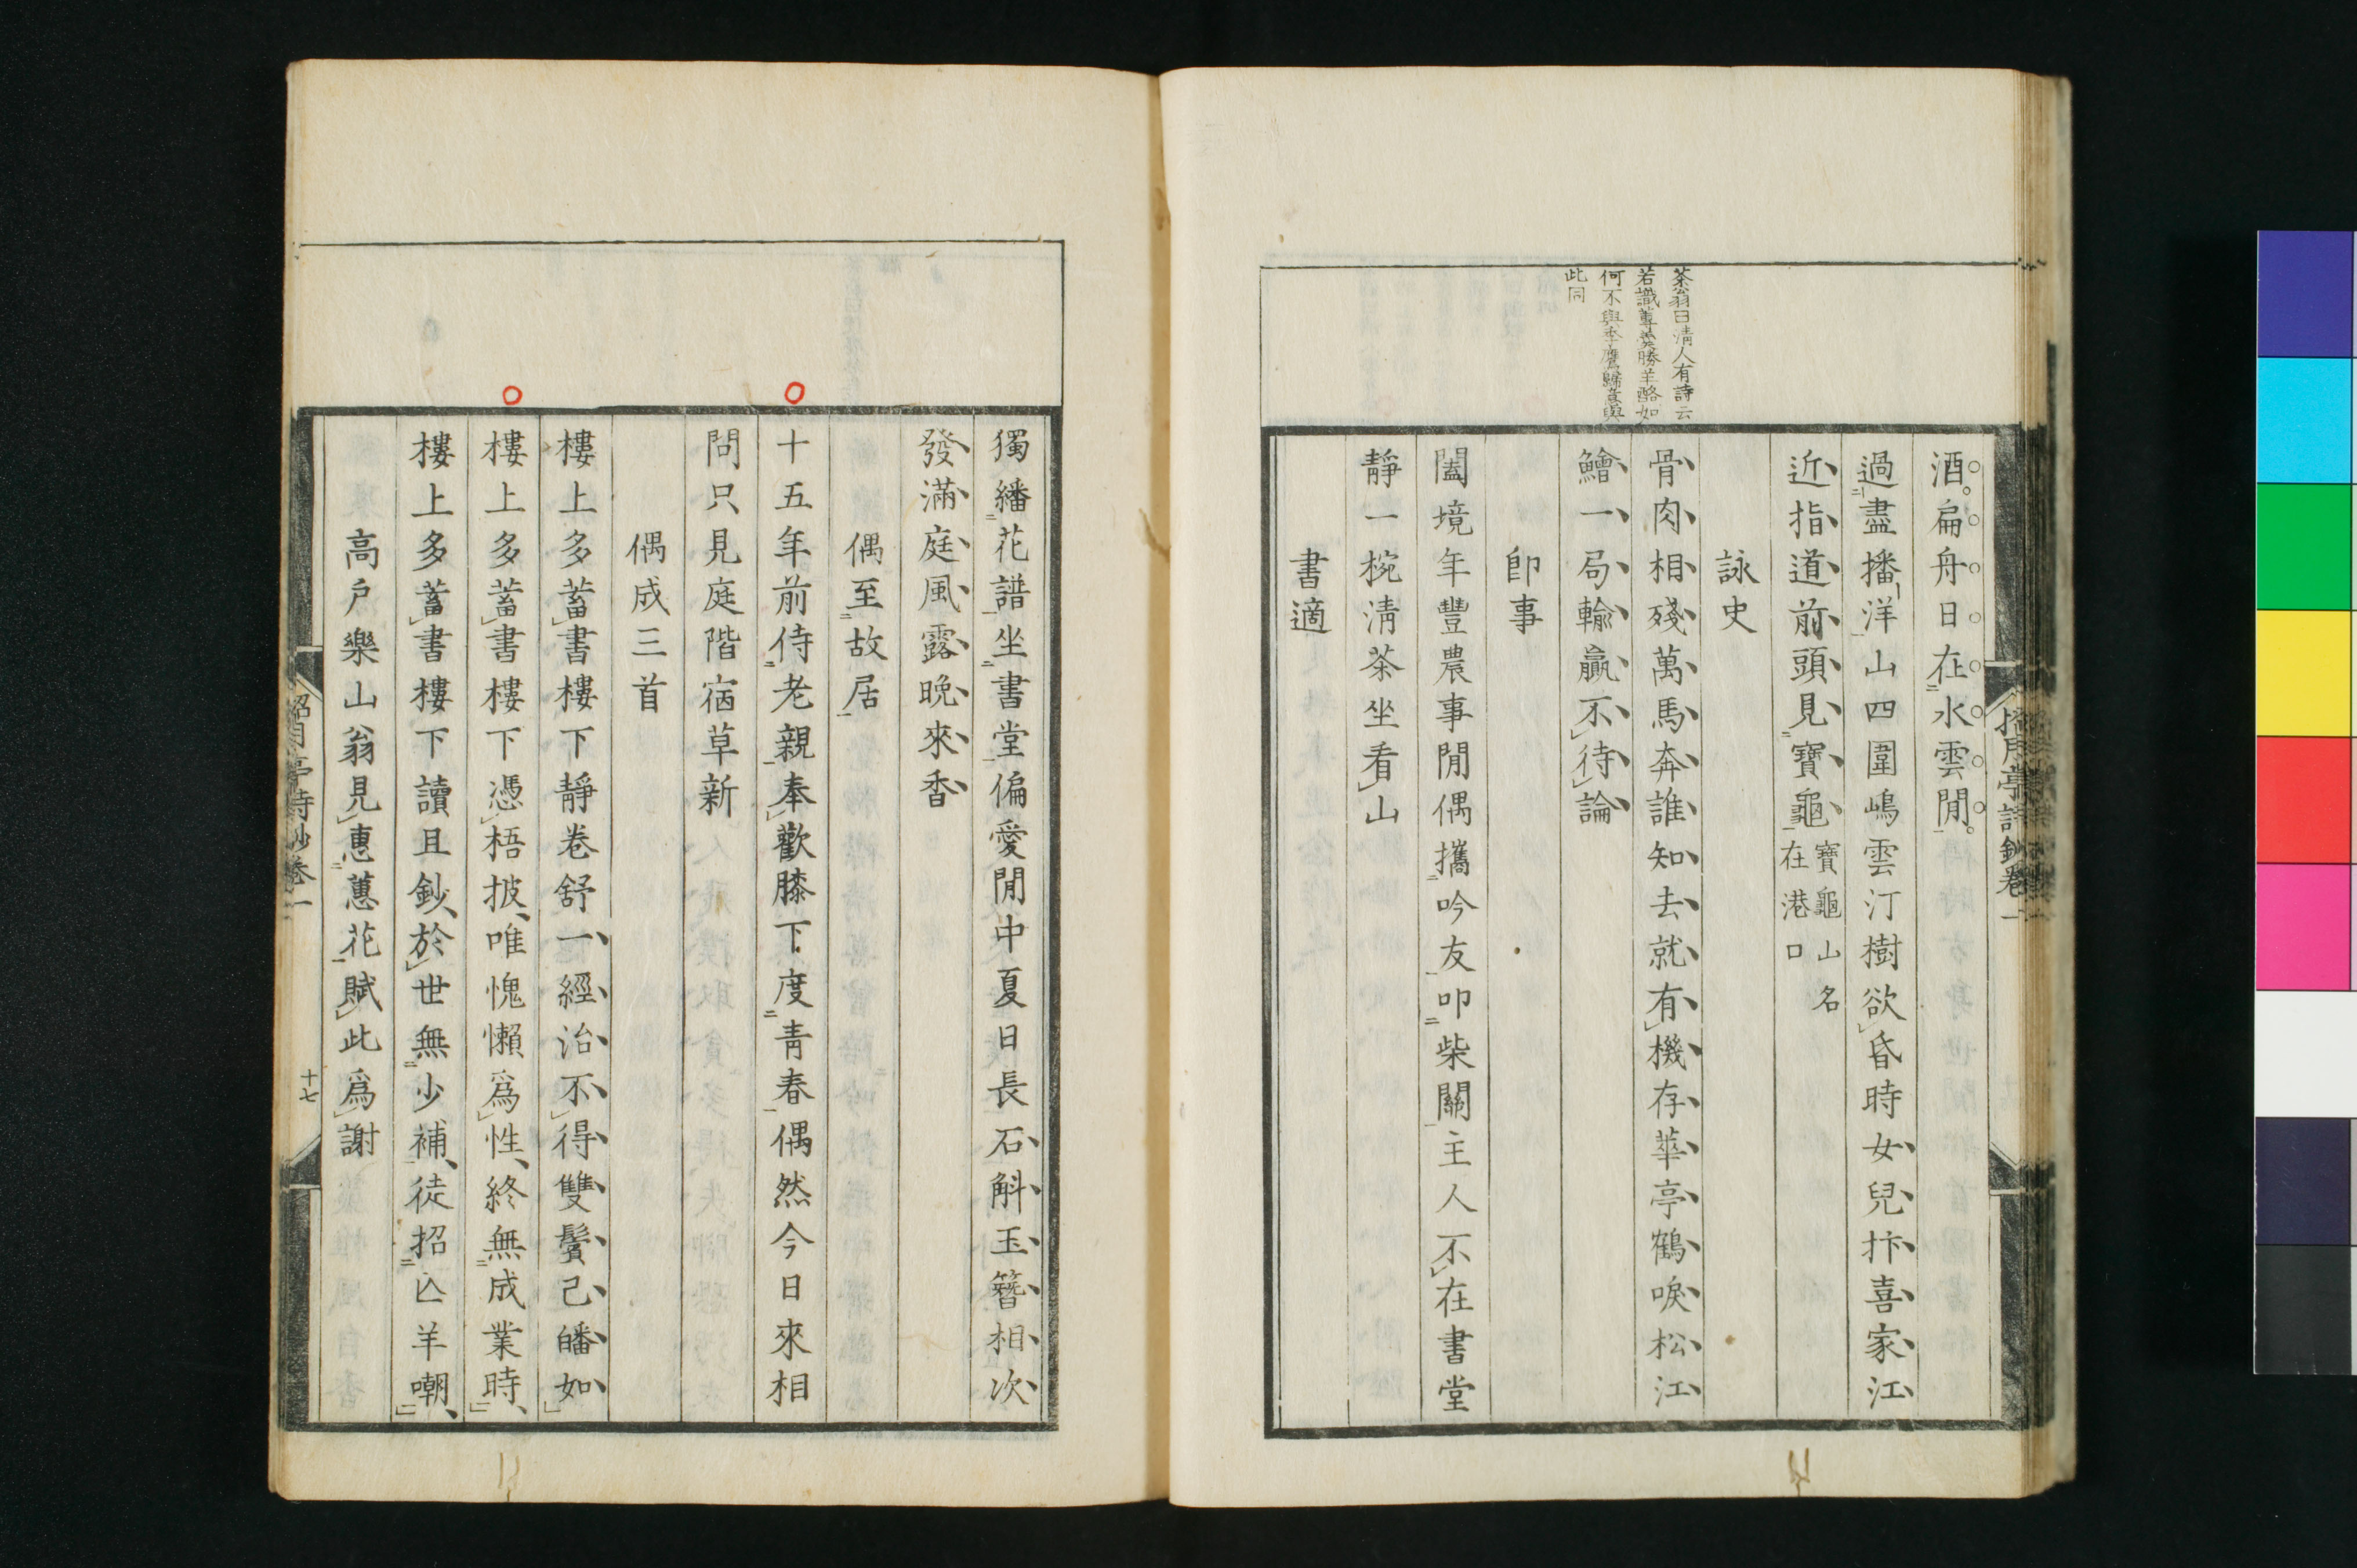 招月亭詩鈔卷一
茶翁曰清人有詩云
若識蓴羮勝羊酪如
何不與季鷹歸意與
此同
酒扁舟日在水雲閒
過盡播洋山四圍嶋雲汀樹欲昏時女兒抃喜家江
近指道前頭見寶龜寶龜山名
在港口
詠史
骨肉相殘萬馬奔誰知去就有機存華亭鶴唳松江
鱠一局輸贏不待論
即事
闔境年豐農事閒偶攜吟友叩柴關主人不在書堂
靜一椀淸茶坐看山
書適
獨繙花譜坐書堂偏愛閒中夏日長石斛玉簪相次
發滿庭風露晩來香
偶至故居
十五年前侍老親奉歡膝下度靑春偶然今日來相
問只見庭階宿草新
偶成三首
樓上多蓄書樓下靜卷舒一經治不得雙鬢已皤如
樓上多蓄書樓下憑梧披唯愧懶爲性終無成業時
樓上多蓄書樓下讀且鈔於世無少補徒招亾羊嘲
高戶樂山翁見惠蕙花賦此爲謝
招月亭詩鈔卷一
十七